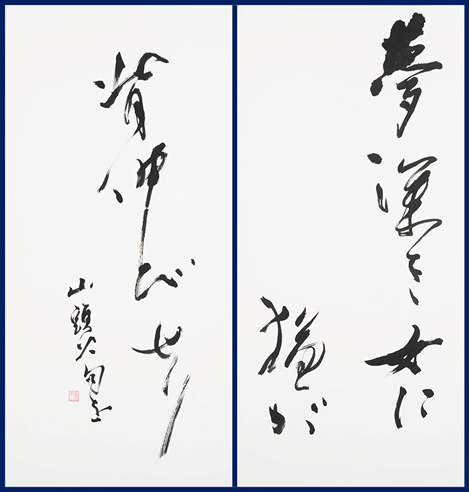 夢深き女に
猫が
背伸びせり
山頭火句を